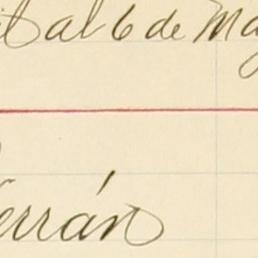 al 6 de
errán